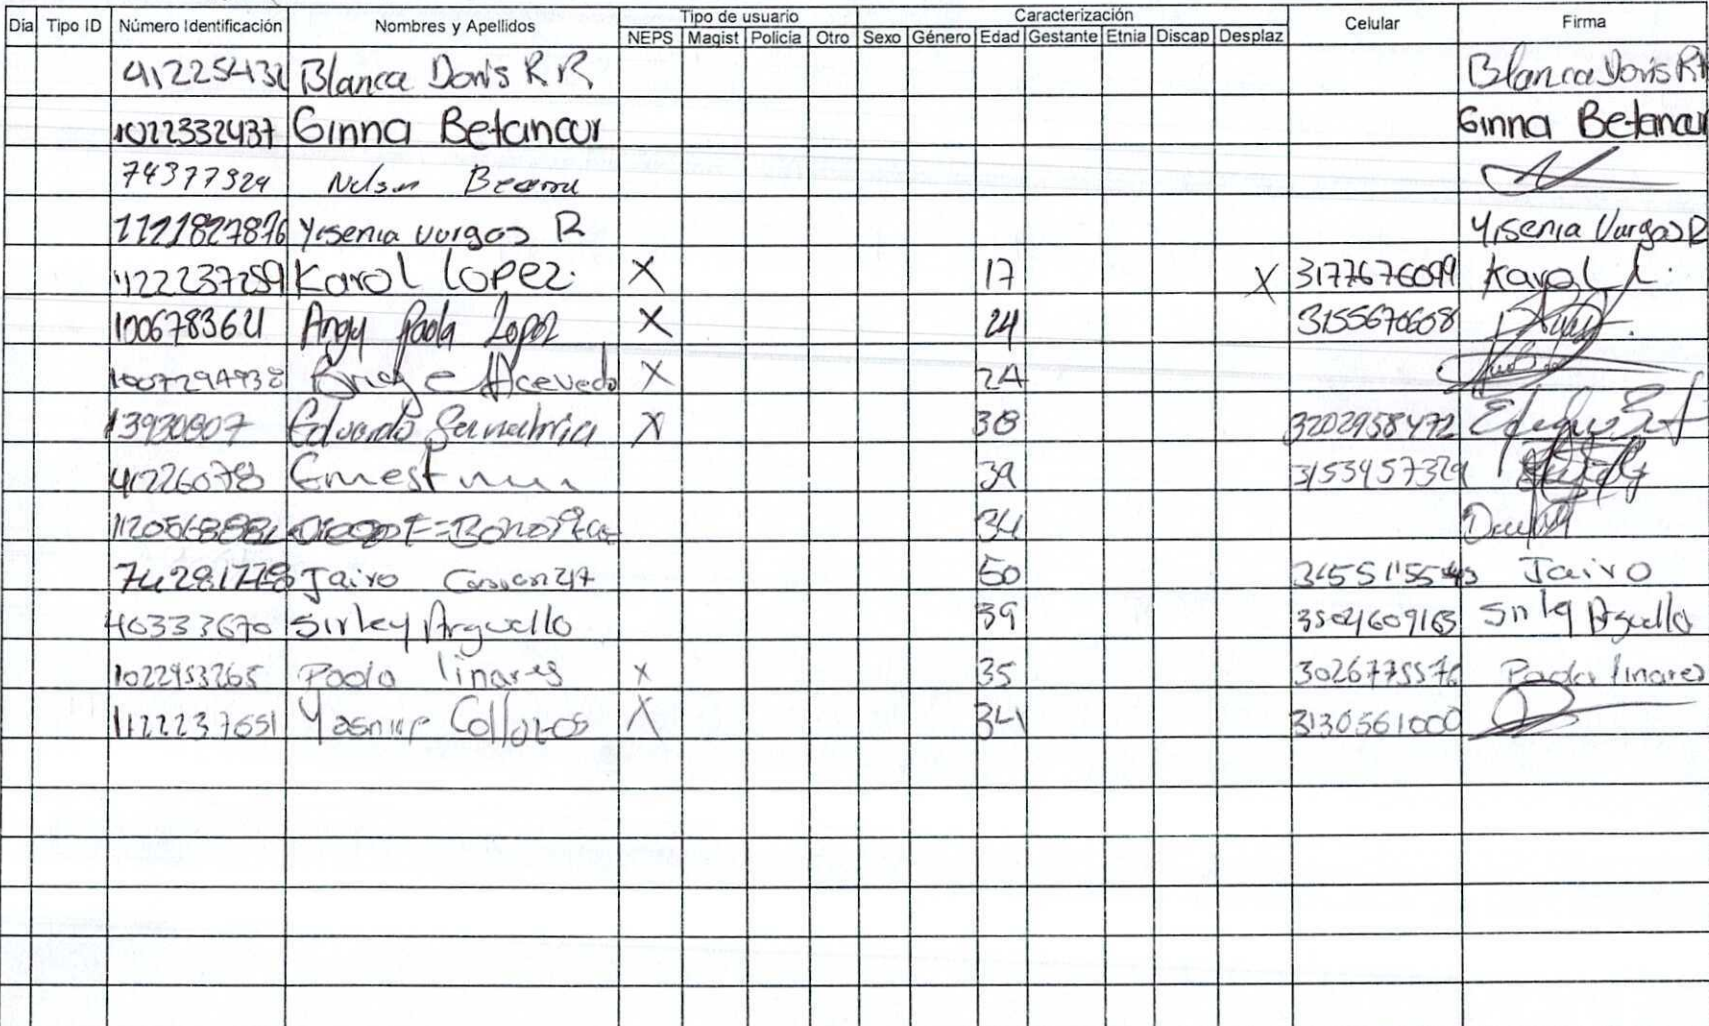 Tipo de usuario Caracterización
Día Tipo ID Número Identificación Nombres y Apellidos NEPS Magist Policia Otro Sexo Género Edad Gestante Etnia Discap Desplaz Celular Firma
41225432 Blanca Doris R R Blanca Doris RR
1022332437 Ginna Betancur Ginna Betancur
74377324 Nelson
1121827876 Yisenia vargas R Yisenia Vargas R
1122237259 Karol Lopez. X 17 X 3177676099 Karol L.
1006783621 Angy Paola Lopez X 24 3155670608
1007294938 Acevedo X 24
13930807 Eduardo Sanabria X 38 3202958472
41226078 39 3153457329
34
74281778 Jairo 50 Jairo
40333670 Sirley Arguello 39 3504609163 Sirley Arguello
1022953265 Paola linares X 35 3026775576 Paola linares
1122237651 Collazos X 34 3130561000